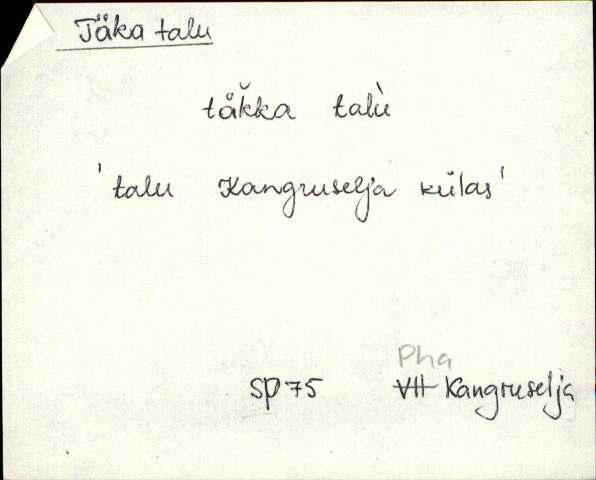 Täka talu
tåk̆ka talù
'talu Kangruselja külas'
Pha
SP 75 VII Kangruselja